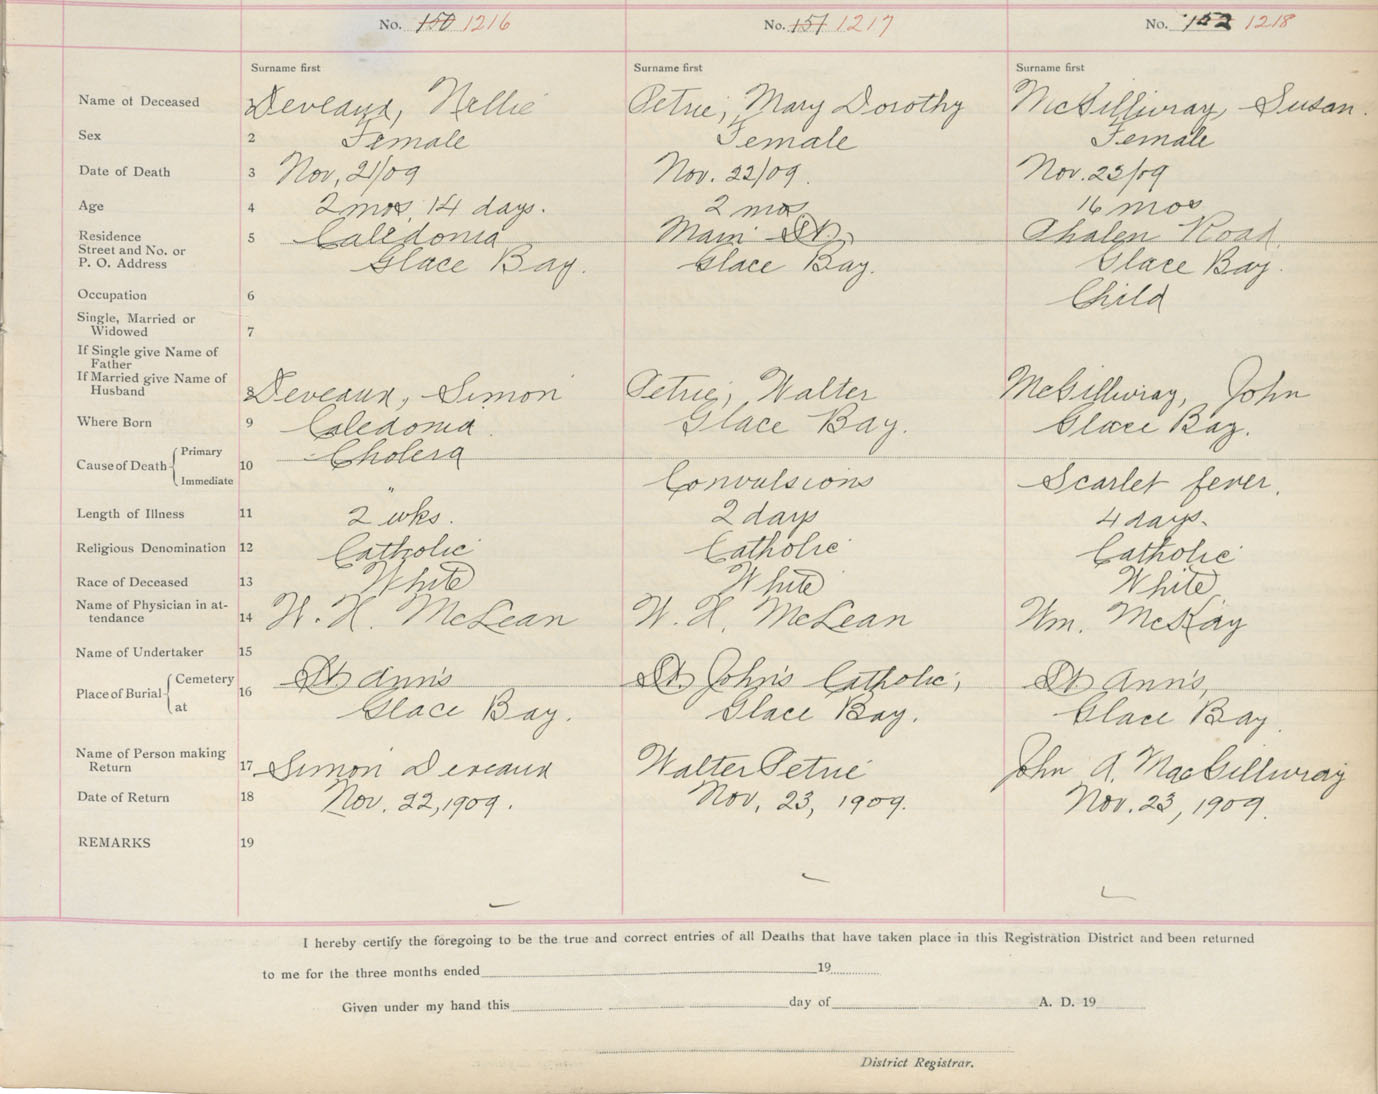 No. 150 1216 No. 151 1217 No. 152 1218
Surname first Surname first Surname first
Name of Deceased 1 Deveaux, Nellie Petrie, Mary Dorothy McGillivray, Susan.
Sex 2 Female Female Female
Date of Death 3 Nov, 21/09 Nov. 22/09. Nov. 23/09
Age 4 2 mos, 14 days. 2 mos 16 mos
Residence 5 Caledonia Main St. Road,
Street and No. or
P. O. Address Glace Bay. Glace Bay. Glace Bay.
Occupation 6 Child
Single, Married or
Widowed 7
If Single give Name of
Father
If Married give Name of
Husband 8 Deveaux, Simon Petrie, Walter McGillivray, John
Where Born 9 Caledonia. Glace Bay. Glace Bay.
Cause of Death Primary 10 Cholera
Immediate " Convulsions Scarlet fever.
Length of Illness 11 2 wks. 2 days 4 days.
Religious Denomination 12 Catholic Catholic Catholic
Race of Deceased 13 White White White
Name of Physician in at-
tendance 14 W. H. McLean W. H. McLean Wm. McKay
Name of Undertaker 15
Place of Burial Cemetery 16 St Ann's St. John's Catholic, St Ann's,
at Glace Bay. Glace Bay. Glace Bay.
Name of Person making
Return 17 Simon Deveaux Walter Petrie John A. MacGillivray
Date of Return 18 Nov. 22, 1909. Nov. 23, 1909. Nov. 23, 1909.
REMARKS 19
I hereby certify the foregoing to be the true and correct entries of all Deaths that have taken place in this Registration District and been returned
to me for the three months ended 19
Given under my hand this day of A. D. 19
District Registrar.